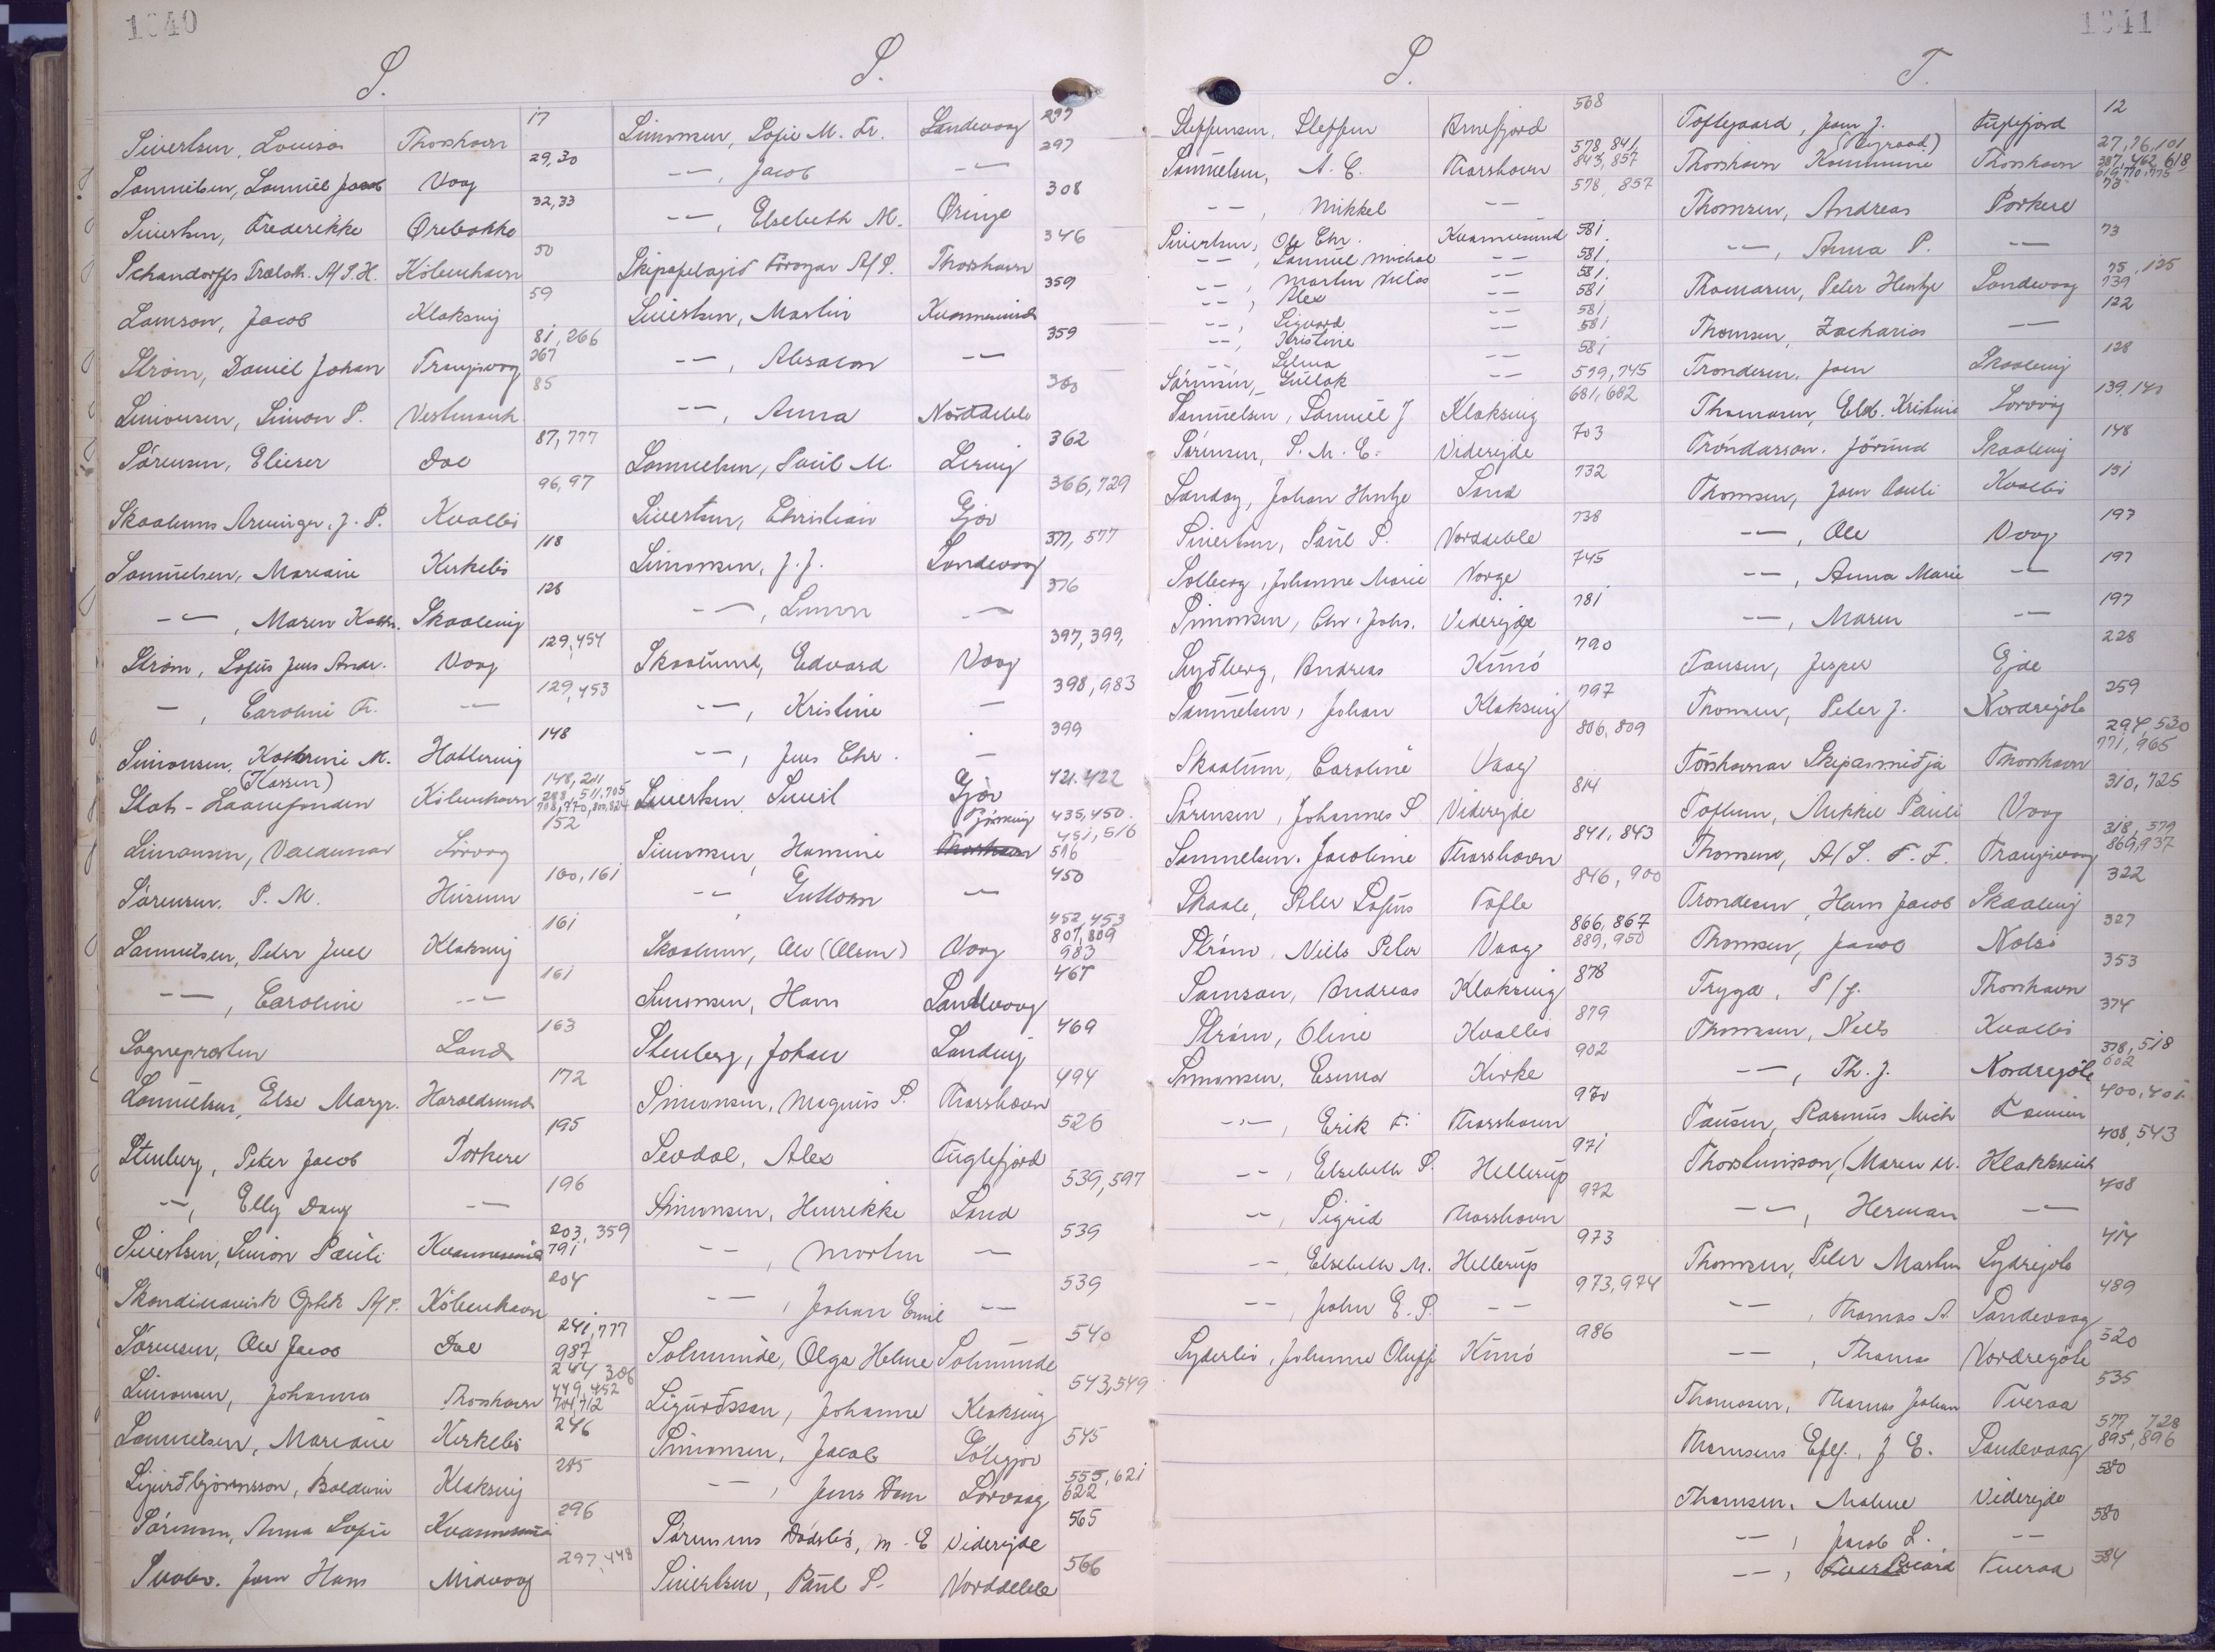 1040
S.
Sivertsen, Louisa Thorshavn 17
Samuelsen, Samuel Jacob Vaag 29,30
Sivertsen, Frederikke Ørebakke 32,33
Schandorffs Trælsth. A/S. H. København 50
Samson, Jacob Klaksvig 59
Strøm, Daniel Johan Trangisvaag 81, 266 267
Simonsen, Simon P. Vestmanh. 85
Sørensen, Elieser Dal 87,777
Skaalums Arvinger, J. P. Kvalbø 96,97
Samuelsen, Mariane Kirkebø 118
-"-, Maren Kathr. Skaalevig 128
Strøm, Sofus Jens Andr. Vaag 129,454
-, Caroline Fr. -"- 129,453
Simonsen, Kathrine M. Hattervig 148
(Kassen)
Stats-Laanefonden København 148,211 288,511,705 708,770,800,824
Simonsen, Valdemar Sörvaag 152
Sørensen, P. M. Húsum 160,161
Samuelsen, Peter Juel Klaksvig 161
-"-, Caroline -"- 161
Sognepræsten Sand 163
Samuelsen, Else Margr. Haraldssund 172
Stenberg, Peter Jacob Porkere 195
-"-, Elly Dang -"- 196
Sivertsen, Simon Pauli Kvannesund 203, 359 791
Skandinavisk Optik A/S. København 204
Sørensen, Ole Jacob Dal 241,777 987
Simonsen, Johanna Thorshavn 244 306 449,452 701,712
Samuelsen, Mariane Kirkebø 246
Sigurðbjörnsson, Baldvin Klaksvig 285
Sørensen, Anna Sofie Kvannesund 296
Svabo, Jom Hans Midvaag 297,448
S.
Simonsen, Sofie M. Fr. Sandevaag 297
-"-, Jacob -"- 297
-"-, Elsebeth M. Øringe 308
Skipafelagið Føroyar A/S. Thorshavn 346
Sivertsen, Martin Kvannesund 359
-"-, Absalon -"- 359
-"-, Anna Norddeble 360
Samuelsen, Poul M. Lervig 362
Sivertsen, Christian Gjov 366,729
Simonsen, J. J. Sandevaag 371, 577
-"-, Simon -"- 376
Skaalum, Edvard Vaag 397,399,
-"-, Kristine - 398,983
-"-, Jens Chr. - 399
Sivertsen Sivert Gjov 421.422
Simonsen, Hamine 435,450. 451,516 516
-"-, Gulloen -"- 450
Skaalum, Ole (Olsen) Vaag 452,453 807,809 983
Simonsen, Hans Sandevaag 467
Stenberg, Johan Sandvig 469
Simonsen, Magnus S. Thorshavn 494
Sevdal, Alex Fuglefjord 526
Simonsen, Henrikke Sand 539,597
-"-, Morten -"- 539
-"-, Johan Emil -"- 539
Solmunde, Olga Helene Solmunde 540
Sigurðsson, Johanne Klaksvig 543,549
Simonsen, Jacob Gótegjov 545
-"-, Jens Dam Sørvaag 555,621 622
Sørensens Dødsbo, M. E Viderejde 565
Sivertsen, Paul S. Norddeble 566
1041
S.
Steffensen, Steffen Arnefjord 568
Samuelsen, A. C. Thorshavn 578,841, 843,857
-"-, Mikkel -"- 578, 857
Sivertsen, Ole Chr. Kvannesund 581
-"-, Samuel Michal -"- 581,
-"-, Martin Niclas -"- 581,
-"-, Alex -"- 581
-"-, Sigvard -"- 581
-"-, Kristine -"- 581
-"-, Selma -"- 581
Sørensen, Gullak -"- 599,745
Samuelsen, Samuel J Klaksvig 681,682
Sørensen, S. M. E. Viderejde 703
Sandoy, Johan Hentze Sand 732
Sivertsen, Paul S. Norddeble 738
Solberg, Johanne Marie Norge 745
Simonsen, Chr. Johs. Viderejde 781
Syðberg, Andreas Kunö 790
Samuelsen, Johan Klaksvig 797
Skaalum, Caroline Vaag 806,809
Sørensen, Johannes S Viderejde 814
Samuelsen, Jacobine Thorshavn 841,843
Skaale, Peter Sofus Tofte 846,900
Strøm, Niels Peter Vaag 866,867 889,950
Samson, Andreas Klaksvig 878
Strøm, Oline Kvalbø 879
Simonsen, Esma Kirke 902
-"-, Erik F. Thorshavn 970
-"-, Elsebeth S. Hellerup 971
-"-, Sigrid Thorshavn 972
-"-, Elsebeth M. Hellerup 973
-"-, John E. S. -"- 973,974
Syderbø, Johanne Oluff Kunö 986
T.
Toftegaard, Jom J. Fuglefjord 12
(Byraad)
Thorshavn Kommune Thorshavn 27,76,101 387,462,618 619,770,775
Thomsen, Andreas Porkere 73
-"-, Anna P. -"- 73
Thomassen, Peter Hentze Sandevaag 75,125 739
Thomsen, Zacharias -"- 122
Trondesen, Jom Skaalevig 128
Thomasen, Elsb. Kristina Sorvaag 139,140
Tróndarson, Jørund Skaalevig 148
Thomsen, Jom Pauli Kvalbø 151
-"-, Ole Vaag 197
-"-, Anna Marie -"- 197
-"-, Maren -"- 197
Tausen, Jesper Ejde 228
Thomsen, Peter J. Nordrejgöte 259
Tórshavnar Skipasmiðja Thorshavn 294,530 771,965
Toftum, Mikkel Pauli Vaag 310,725
Thomsen, A/S. T. F. Trangisvaag 318, 579 869,937
Trondesen, Hans Jacob Skaalevig 322
Thomsen, Jacob Nolsö 327
Tryga, P/f. Thorshavn 353
Thomsen, Niels Kvalbø 374
-"-, Th. J. Nordregöte 378,518 602
Tausen, Rasmus Mich 400,401
Thorsteinsson, (Maren M. Klakksvik 408,543
-"-, Herman -"- 408
Thomsen, Peter Martin Sydregöte 414
-"-, Thomas A. Sandevaag 489
-"-, Thomas Nordregöte 520
Thomasen, Thomas Johan Tveraa 535
Thomsens Eftf. J E. Sandevaag 577, 728 895,896
Thomsen, Malene Viderejde 580
-"-, Jacob L. -"- 580
-"-, Ricard Tveraa 584